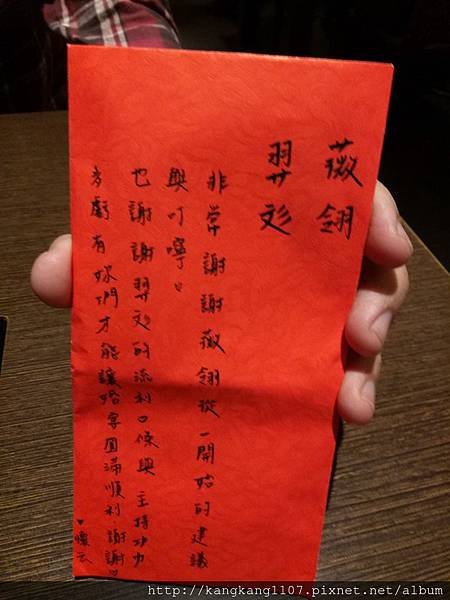 薇翎
羿彣
非常謝謝薇翎從一開始的建議
與叮嚀。
也謝謝羿彣的流利口條與主持功力
多虧有妳們才能讓婚宴圓滿順利.謝謝
♥懷云
http://kangkang1107.pixnet.net/album